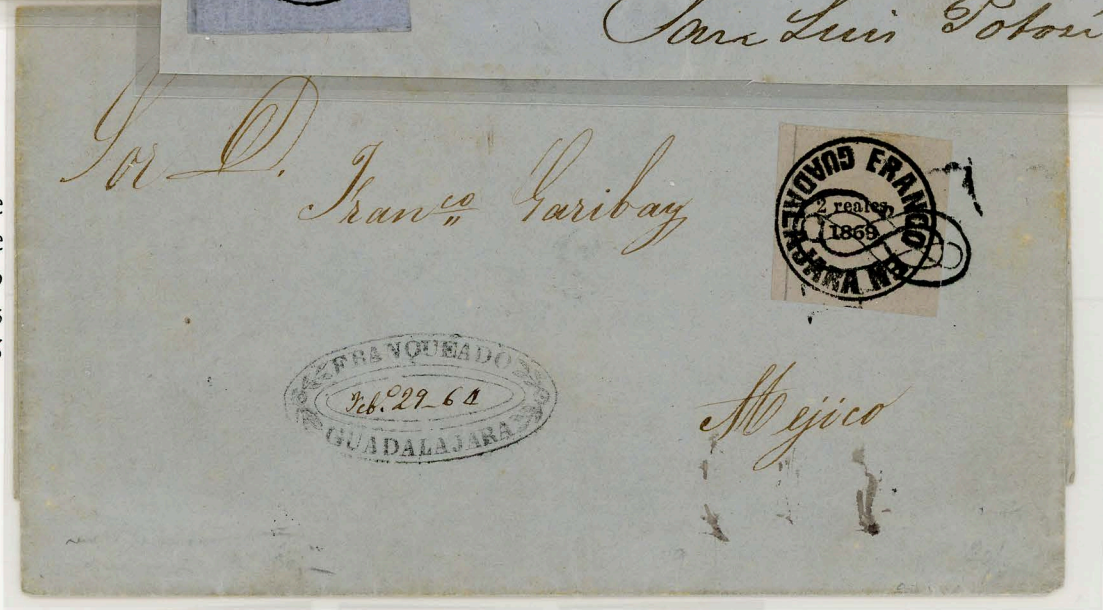 San Luis Potosí
Sor D.
Franco Garibay
FRANCO EN GUADALAJARA
2 reales
1869
FRANQUEADO
Feb.o 29_64
GUADALAJARA
Mejico